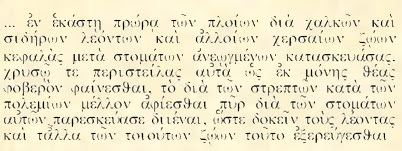 ... ἐν ἑκάστῃ πρώρᾳ τῶν πλοίων διὰ χαλκῶν καὶ
σιδήρων λεόντων καὶ ἀλλοίων χερσαίων ζώων
κεφαλὰς μετὰ στομάτων ἀνεῳγμένων κατασκευάσας,
χρυσῷ τε περιστείλας αὐτὰ ὡς ἐκ μόνης θέας
φοβερὸν φαίνεσθαι, τὸ διὰ τῶν στρεπτῶν κατὰ τῶν
πολεμίων μέλλον ἀφίεσθαι πῦρ διὰ τῶν στομάτων
αὐτῶν παρεσκεύασε διιέναι, ὥστε δοκεῖν τοὺς λέοντας
καὶ τἆλλα τῶν τοιούτων ζώων τοῦτο ἐξερεύγεσθαι